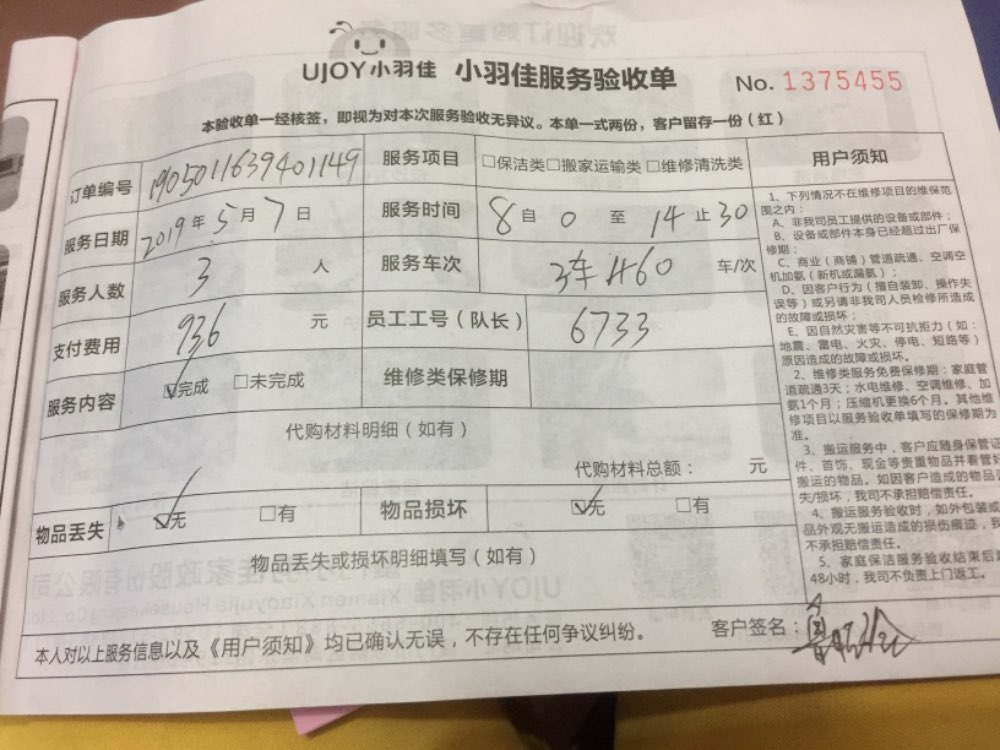 UJOY小羽佳 小羽佳服务验收单 No. 1375455
本验收单一经核签，即视为对本次服务验收无异议。本单一式两份，客户留存一份（红）
订单编号 1905011639401149 服务项目 □保洁类□搬家运输类□维修清洗类
服务日期 2019年5月7日 服务时间 8自0至14止30
服务人数 3 人 服务车次 车/次
支付费用 936 元 员工工号（队长） 6733
服务内容 ☑完成 □未完成 维修类保修期
代购材料明细（如有）
代购材料总额： 元
物品丢失 ☑无 □有 物品损坏 ☑无 □有
物品丢失或损坏明细填写（如有）
本人对以上服务信息以及《用户须知》均已确认无误，不存在任何争议纠纷。 客户签名：
用户须知
1、下列情况不在维修项目的维保范
围之内：
A、非我司员工提供的设备或部件；
B、设备或部件本身已经超过出厂保
修期；
C、商业（商铺）管道疏通、空调空
机加氨（新机或漏氨）；
D、因客户行为（擅自装卸、操作失
误等）或另请非我司人员检修所造成
的故障或损坏；
E、因自然灾害等不可抗拒力（如：
地震、雷电、火灾、停电、短路等）
原因造成的故障或损坏。
2、维修类服务免费保修期：家庭管
道疏通3天；水电维修、空调维修、加
氨1个月；压缩机更换6个月。其他维
修项目以服务验收单填写的保修期为
准。
3、搬运服务中，客户应随身保管证
件、首饰、现金等贵重物品并看管好
搬运的物品。如因客户造成的物品丢
失/损坏，我司不承担赔偿责任。
4、搬运服务验收时，如外包装或
品外观无搬运造成的损伤痕迹，我
不承担赔偿责任。
5、家庭保洁服务验收结束后超
48小时，我司不负责上门返工。